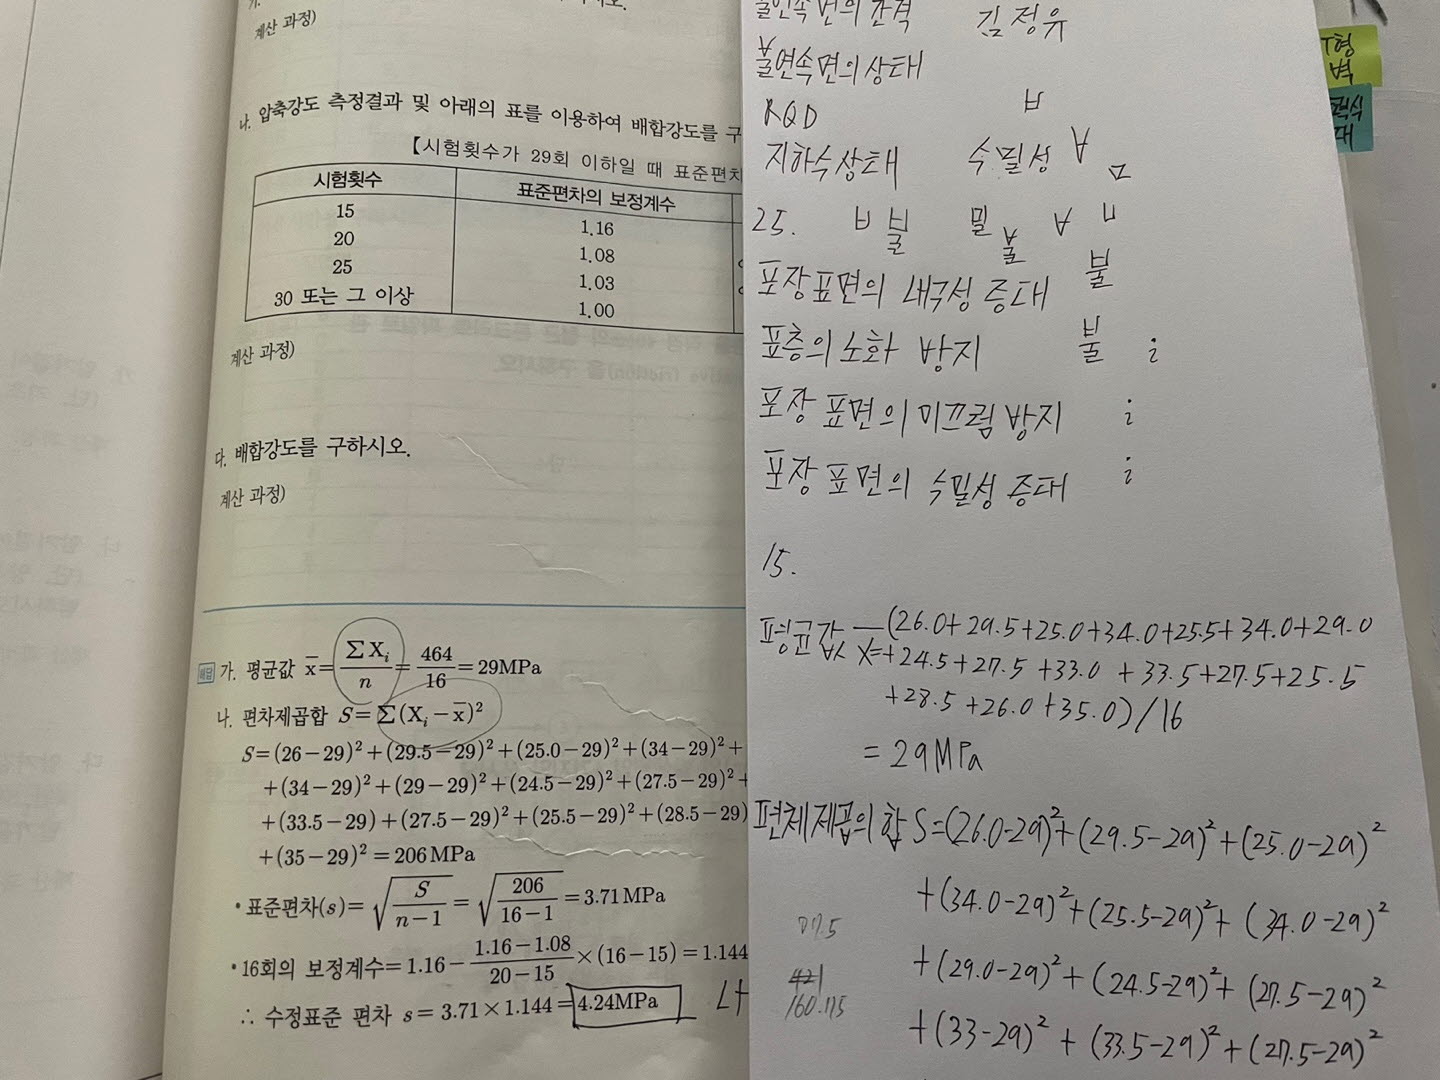 계산 과정)
나. 압축강도 측정결과 및 아래의 표를 이용하여 배합강도를 구
【시험횟수가 29회 이하일 때 표준편차
시험횟수 표준편차의 보정계수
15 1.16
20 1.08
25 1.03
30 또는 그 이상 1.00
계산 과정)
다. 배합강도를 구하시오.
계산 과정)
해답 가. 평균값 x̄ = ΣXᵢ/n = 464/16 = 29MPa
나. 편차제곱합 S=Σ(Xᵢ−x̄)²
S=(26−29)²+(29.5−29)²+(25.0−29)²+(34−29)²+
+(34−29)²+(29−29)²+(24.5−29)²+(27.5−29)²+
+(33.5−29)+(27.5−29)²+(25.5−29)²+(28.5−29)
+(35−29)²=206MPa
• 표준편차(s)=√(S/(n−1))=√(206/(16−1))=3.71MPa
• 16회의 보정계수=1.16−(1.16−1.08)/(20−15)×(16−15)=1.144
∴ 수정표준 편차 s=3.71×1.144=4.24MPa
불연속면의 간격 김정유
불연속면의 상태
RQD ㅂ
지하수상태 수밀성 ㅅ ㅁ
25. ㅂ 불 밀 ㅂ
포장표면의 내구성 증대 불
표층의 노화 방지 불 i
포장 표면의 미끄럼 방지 i
포장 표면의 수밀성 증대 i
15.
평균값 x̄=(26.0+29.5+25.0+34.0+25.5+34.0+29.0
+24.5+27.5+33.0+33.5+27.5+25.5
+28.5+26.0+35.0)/16
=29MPa
편체제곱의 합 S=(26.0-29)²+(29.5-29)²+(25.0-29)²
+(34.0-29)²+(25.5-29)²+(34.0-29)²
+(29.0-29)²+(24.5-29)²+(27.5-29)²
+(33-29)²+(33.5-29)²+(27.5-29)²
T형
벽